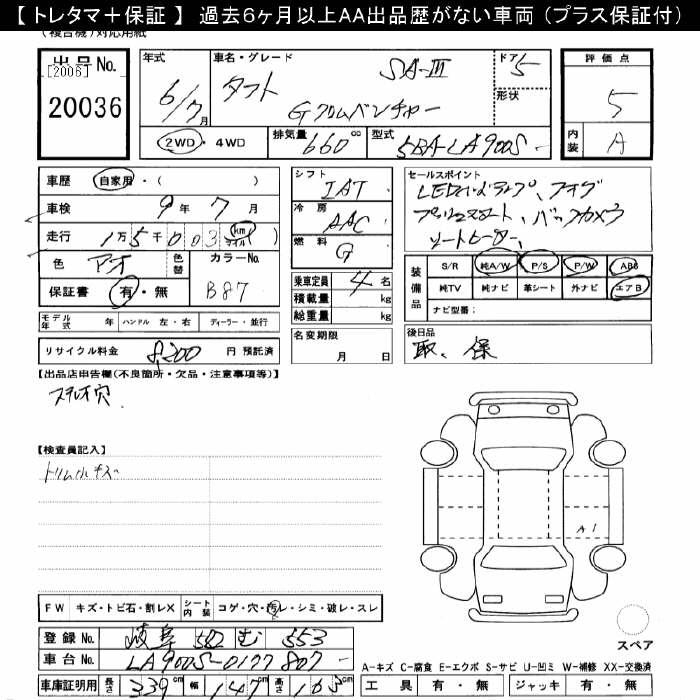 【 トレタマ＋保証 】 過去６ヶ月以上AA出品歴がない車両（プラス保証付）
(複合機)対応用紙
出品No.
[2006]
20036
年式
6/7月
車名・グレード
タフト
SA-Ⅲ
Gクロムベンチャー
ドア 5
形状
評価点
5
内装 A
2WD・4WD
排気量 660 cc
型式 5BA-LA900S
車歴 自家用・( )
車検 9年7月
走行 1万5千003 km マイル( )
色 アオ
色替
カラーNo. B87
保証書 有・無
シフト IAT
冷房 AAC
燃料 G
乗車定員 4名
積載量 kg
総重量 kg
名変期限
月 日
セールスポイント
LEDヘッドランプ、フォグ
プッシュスタート、バックカメラ
シートヒーター、
装備品
S/R 純A/W P/S P/W ABS
純TV 純ナビ 革シート 外ナビ エアB
ナビ型番：
モデル年式 年 ハンドル 左・右 ディーラー・並行
リサイクル料金 8,200 円 預託済
後日品
取、保
【出品店申告欄(不良箇所・欠品・注意事項等)】
ステレオ穴
【検査員記入】
トリム小キズ
A1
FW キズ・トビ石・割レX シート内装 コゲ・穴・汚レ・シミ・破レ・スレ
登録No. 岐阜 582 む 553
車台No. LA900S-0177807
車庫証明用 長さ 339cm 幅 147cm 高さ 163cm
スペア
A-キズ C-腐食 E-エクボ S-サビ U-凹ミ W-補修 XX-交換済
工具 有・無 ジャッキ 有・無